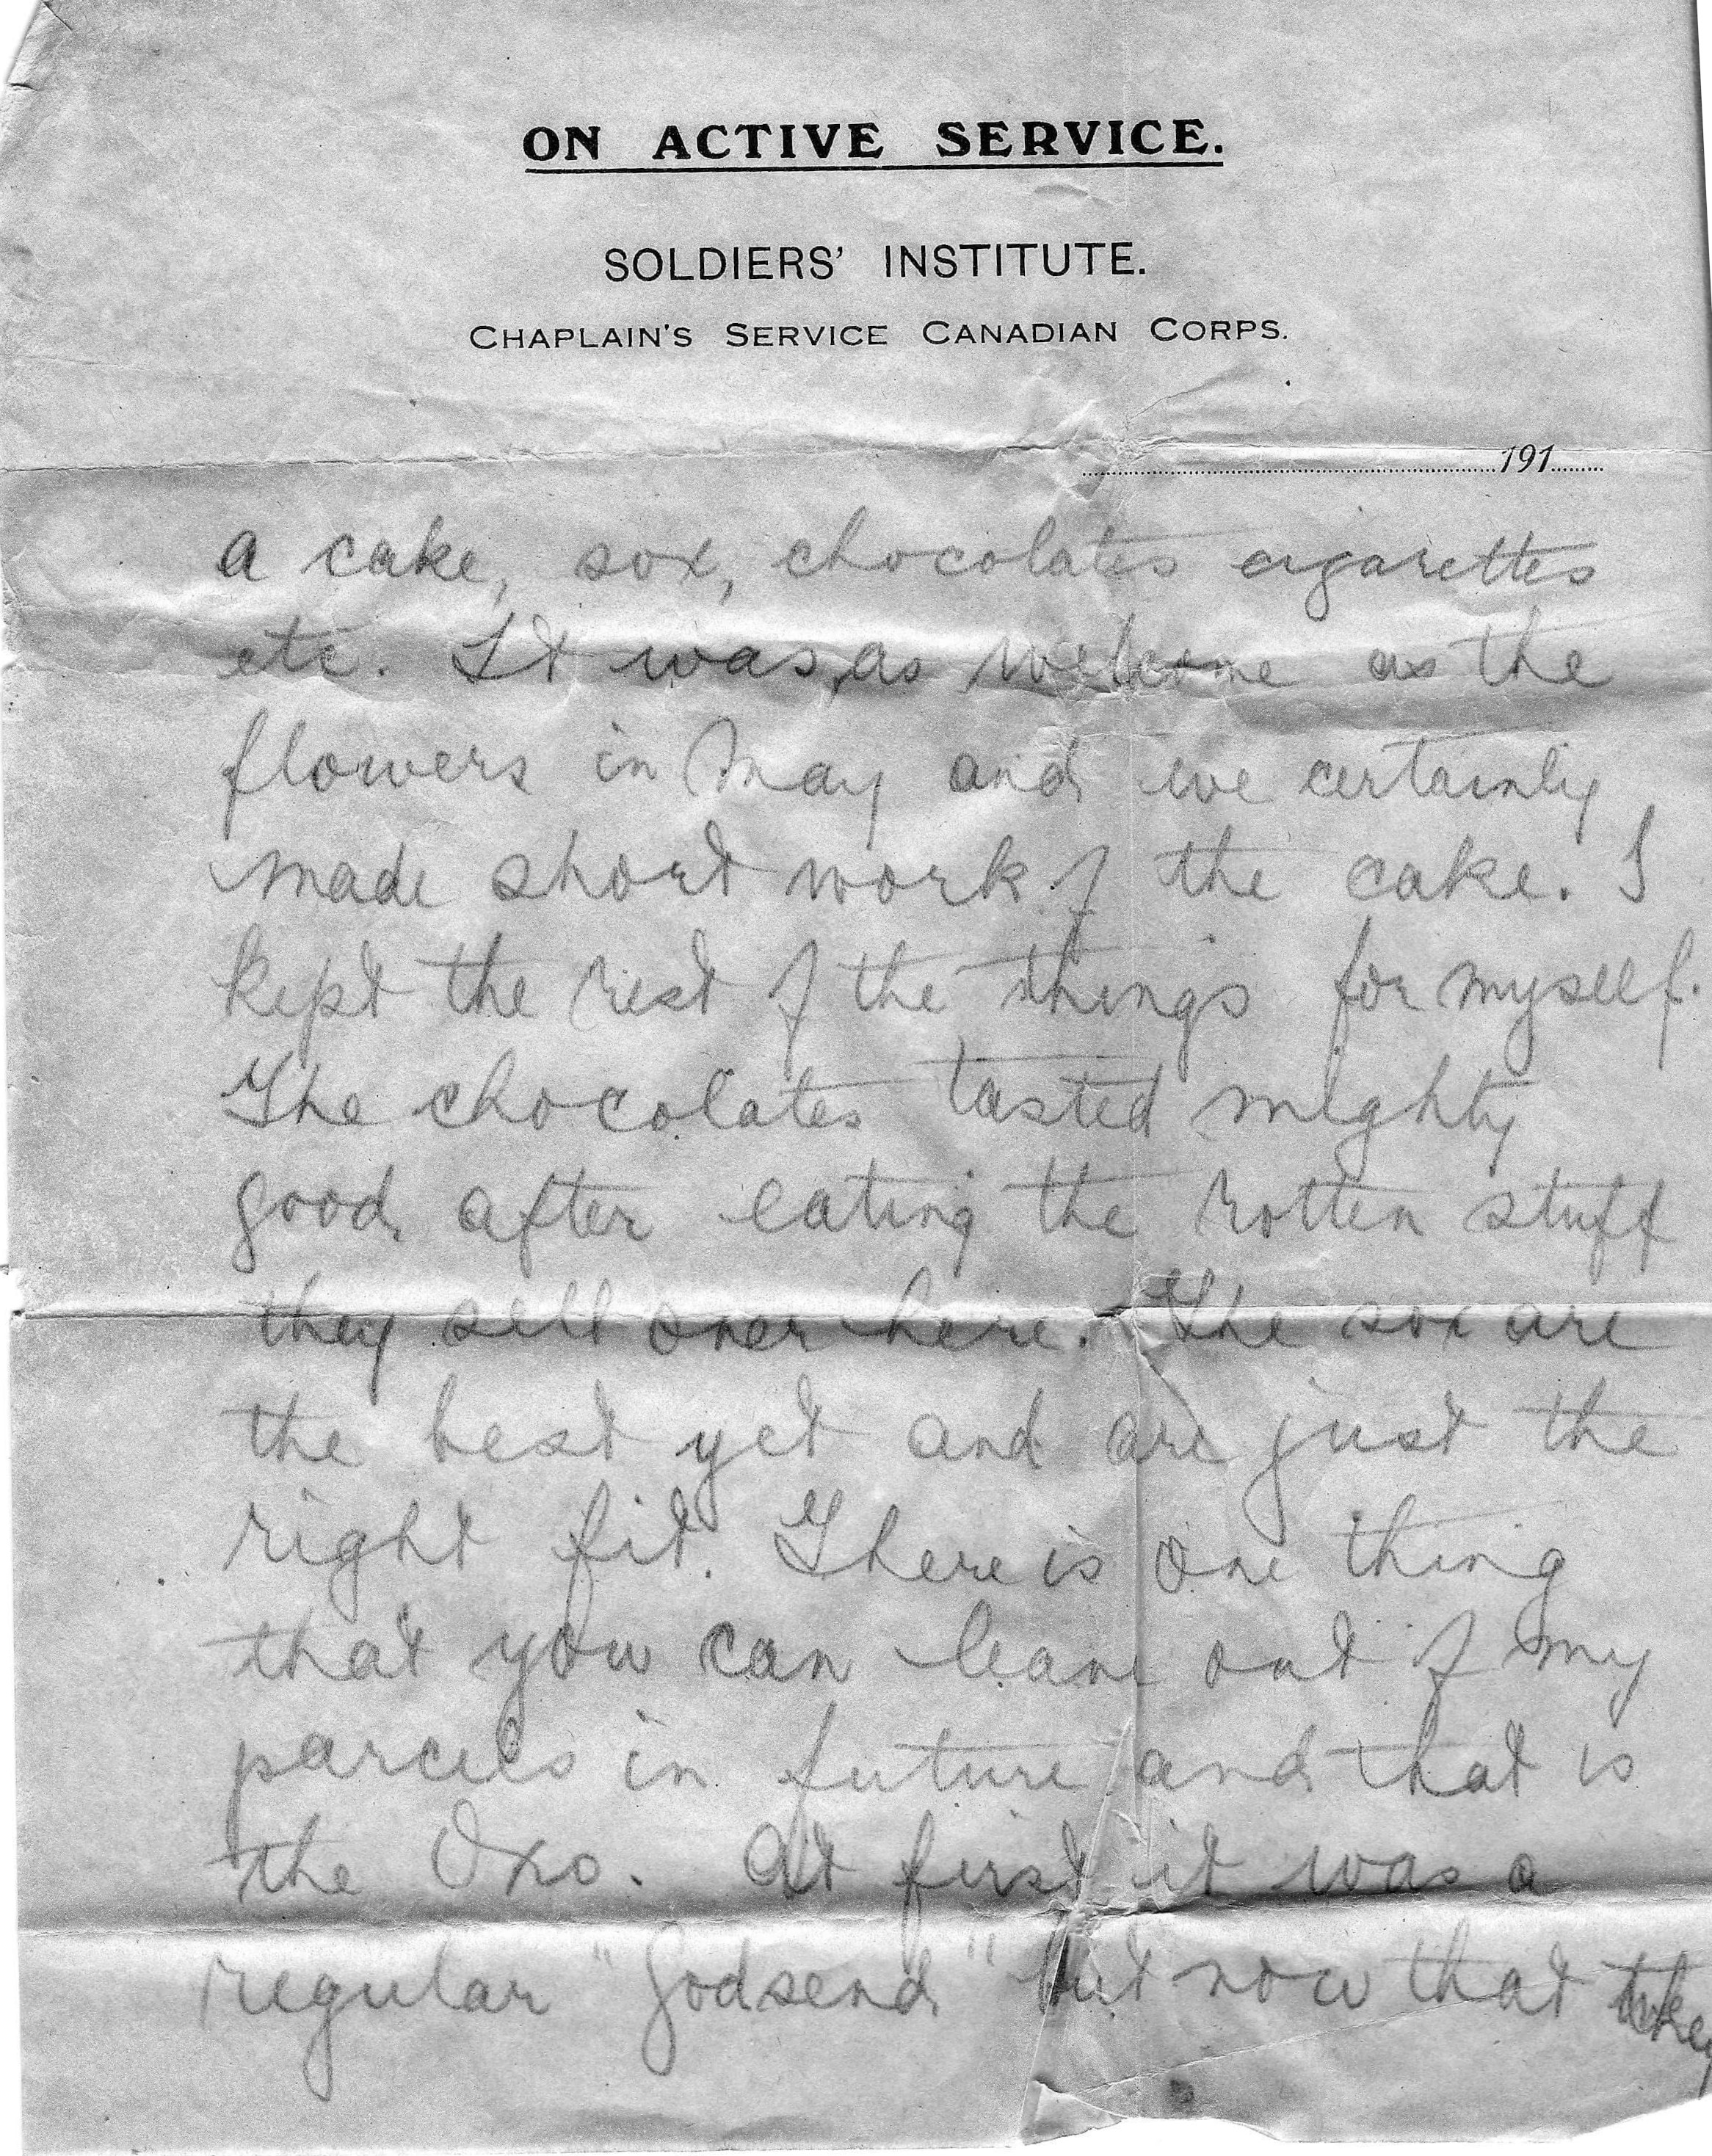 ON ACTIVE SERVICE.
SOLDIERS' INSTITUTE.
CHAPLAIN'S SERVICE CANADIAN CORPS.
191
a cake, sox, chocolates cigarettes
etc. It was, as welcome as the
flowers in May and we certainly
made short work of the cake. I
kept the rest of the things for myself.
The chocolates tasted mighty
good after eating the rotten stuff
they sell over here. The sox are
the best yet and are just the
right fit. There is one thing
that you can leave out of my
parcels in future and that is
the Oxo. At first it was a
regular "Godsend" but now that they